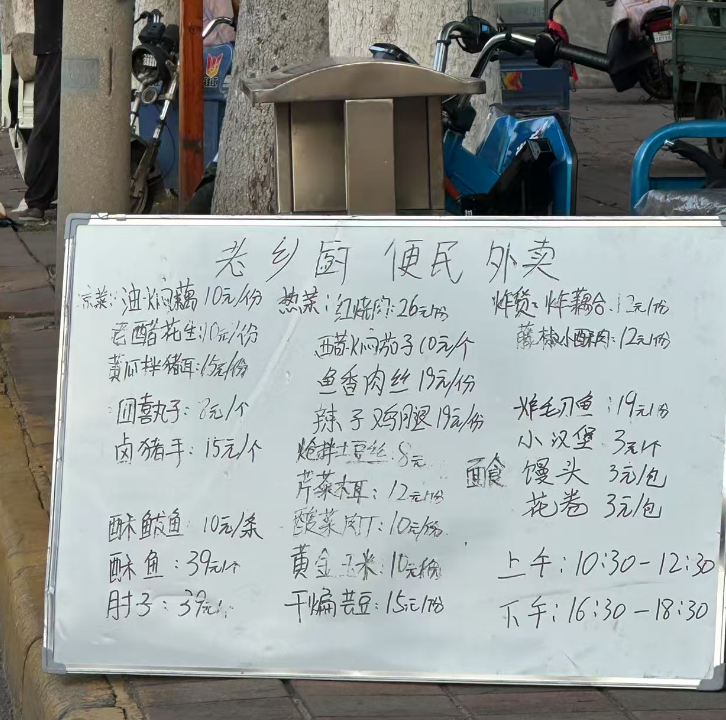 老乡厨 便民 外卖
凉菜: 油焖藕 10元/份
老醋花生:10元/份
黄瓜拌猪耳:15元/份
四喜丸子: 元/个
卤猪手: 15元/个
酥鲅鱼 10元/条
酥鱼: 39元/个
肘子: 39元/
热菜: 红烧肉: 26元/份
醋焖茄子 10元/个
鱼香肉丝 19元/份
辣子鸡腿 19元/份
炝拌土豆丝: 8元
芹菜木耳: 12元/份
酸菜肉丁: 10元/份
黄金玉米: 10元/份
干煸芸豆: 15元/份
炸货: 炸藕合: 12元/份
藤椒小酥肉: 12元/份
炸毛刀鱼: 19元/份
小汉堡 3元/个
面食 馒头 3元/包
花卷 3元/包
上午: 10:30-12:30
下午: 16:30-18:30